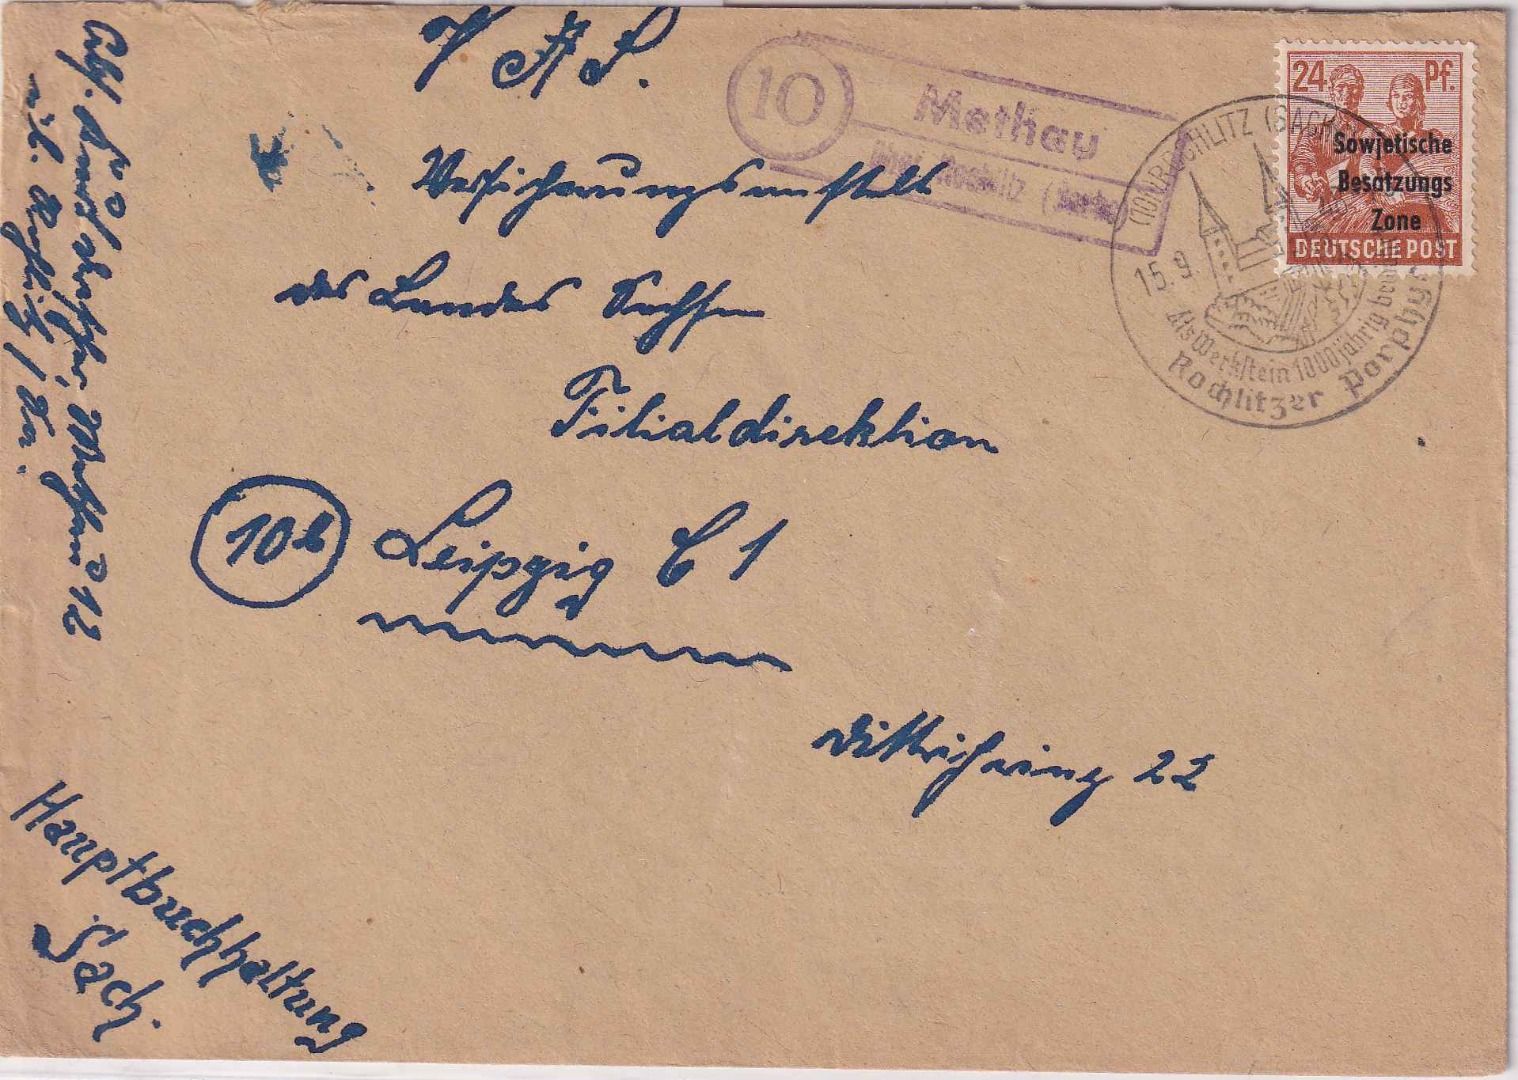 V A S.
Versicherungsanstalt
des Landes Sachsen
Filialdirektion
10b Leipzig C 1
Dittrichring 22
Hauptbuchhaltung
Sach.
Abs. 12
Rochlitz / Sa.
10
Methau
über Rochlitz (Sachs)
24 Pf.
Sowjetische
Besatzungs
Zone
DEUTSCHE POST
(10) ROCHLITZ (SACHS)
15.9.
Als Werkstein 1000jährig
Rochlitzer Porphyr